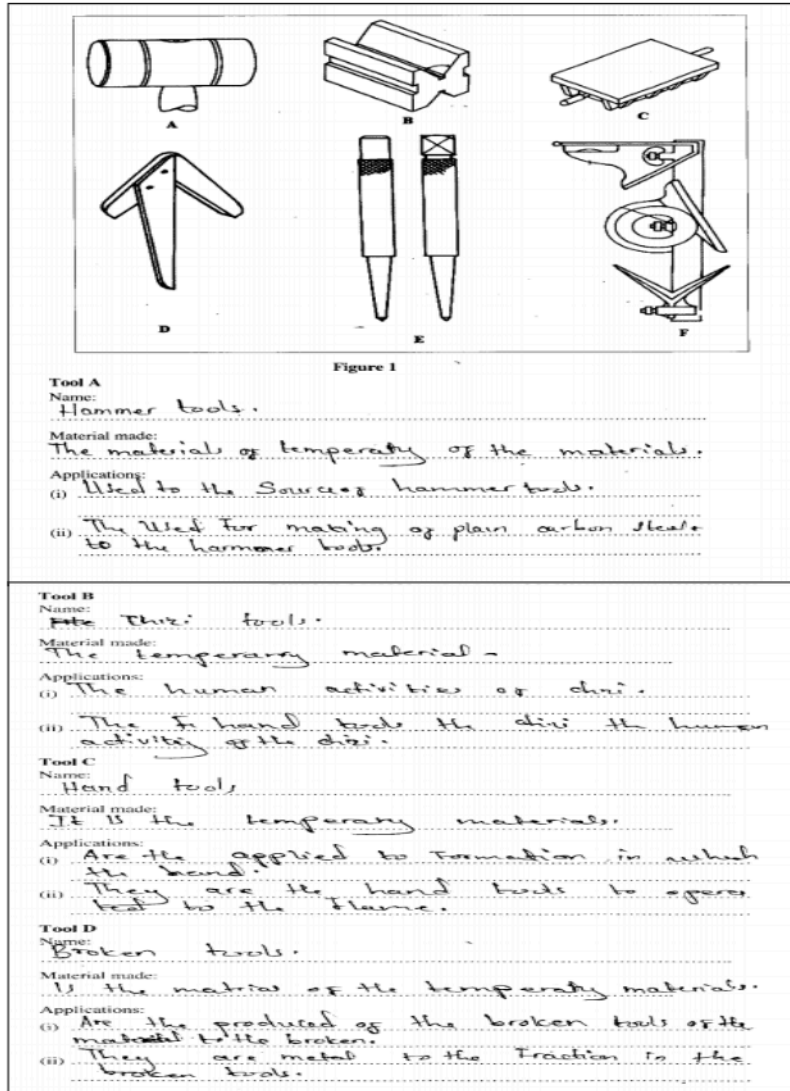 A
B
C
D
E
F
Figure 1
Tool A
Name:
Hammer tools.
Material made:
The materials of temperaty of the materials.
Applications:
(i) Used to the Source of hammer tools.
(ii) The Used For making of plain carbon steels
to the hammer tools.
Tool B
Name:
Thizi tools.
Material made:
The temperarry material.
Applications:
(i) The human activities of chizi.
(ii) The hand tools the chizi the human
activity of the chizi.
Tool C
Name:
Hand tools
Material made:
It is the temperary materials.
Applications:
(i) Are the applied to Formation in which
the hand.
(ii) They are the hand tools to opera
ted to the Flame.
Tool D
Name:
Broken tools.
Material made:
Is the matrias of the temperaty materials.
Applications:
(i) Are the produced of the broken tools of the
material to the broken.
(ii) They are metal to the Fraction in the
broken tools.